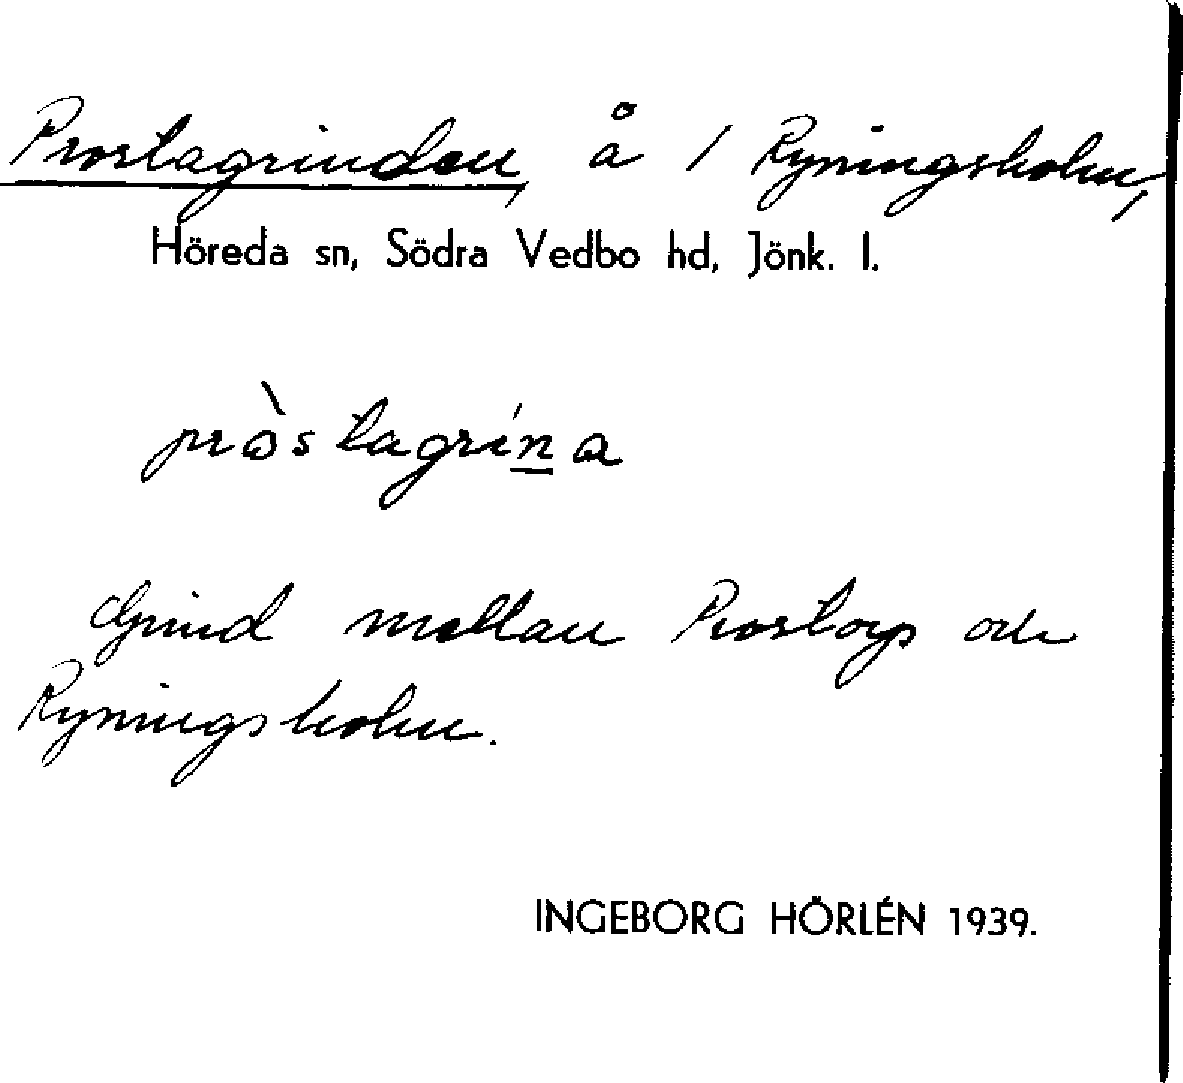 Prostagrinden, å 1 Ryningsholm,
Höreda sn, Södra Vedbo hd, Jönk. l.
pròstagrína
Grind mellan Prostorp och
Ryningsholm.
INGEBORG HÖRLÉN 1939.